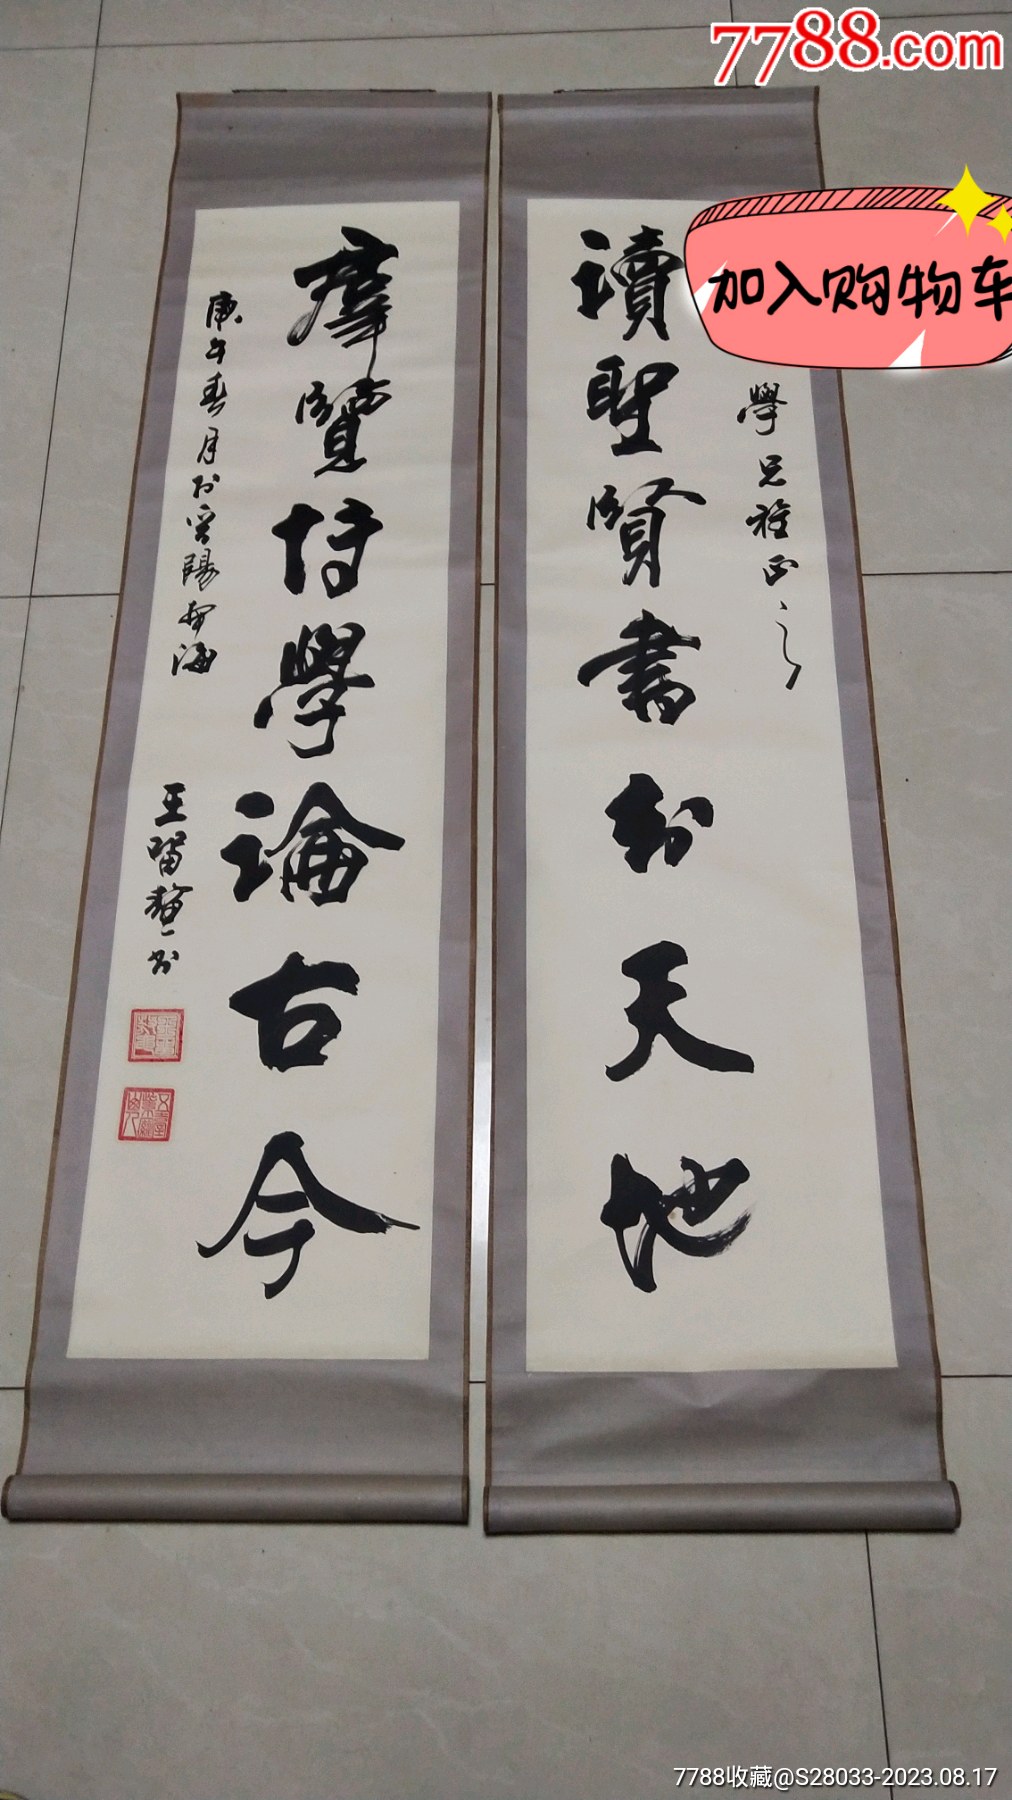 7788.com
加入购物车
學兄雅正之
讀聖賢書於天地
羣覽博學論古今
庚午春月於
王留鰲書
7788收藏@S28033-2023.08.17